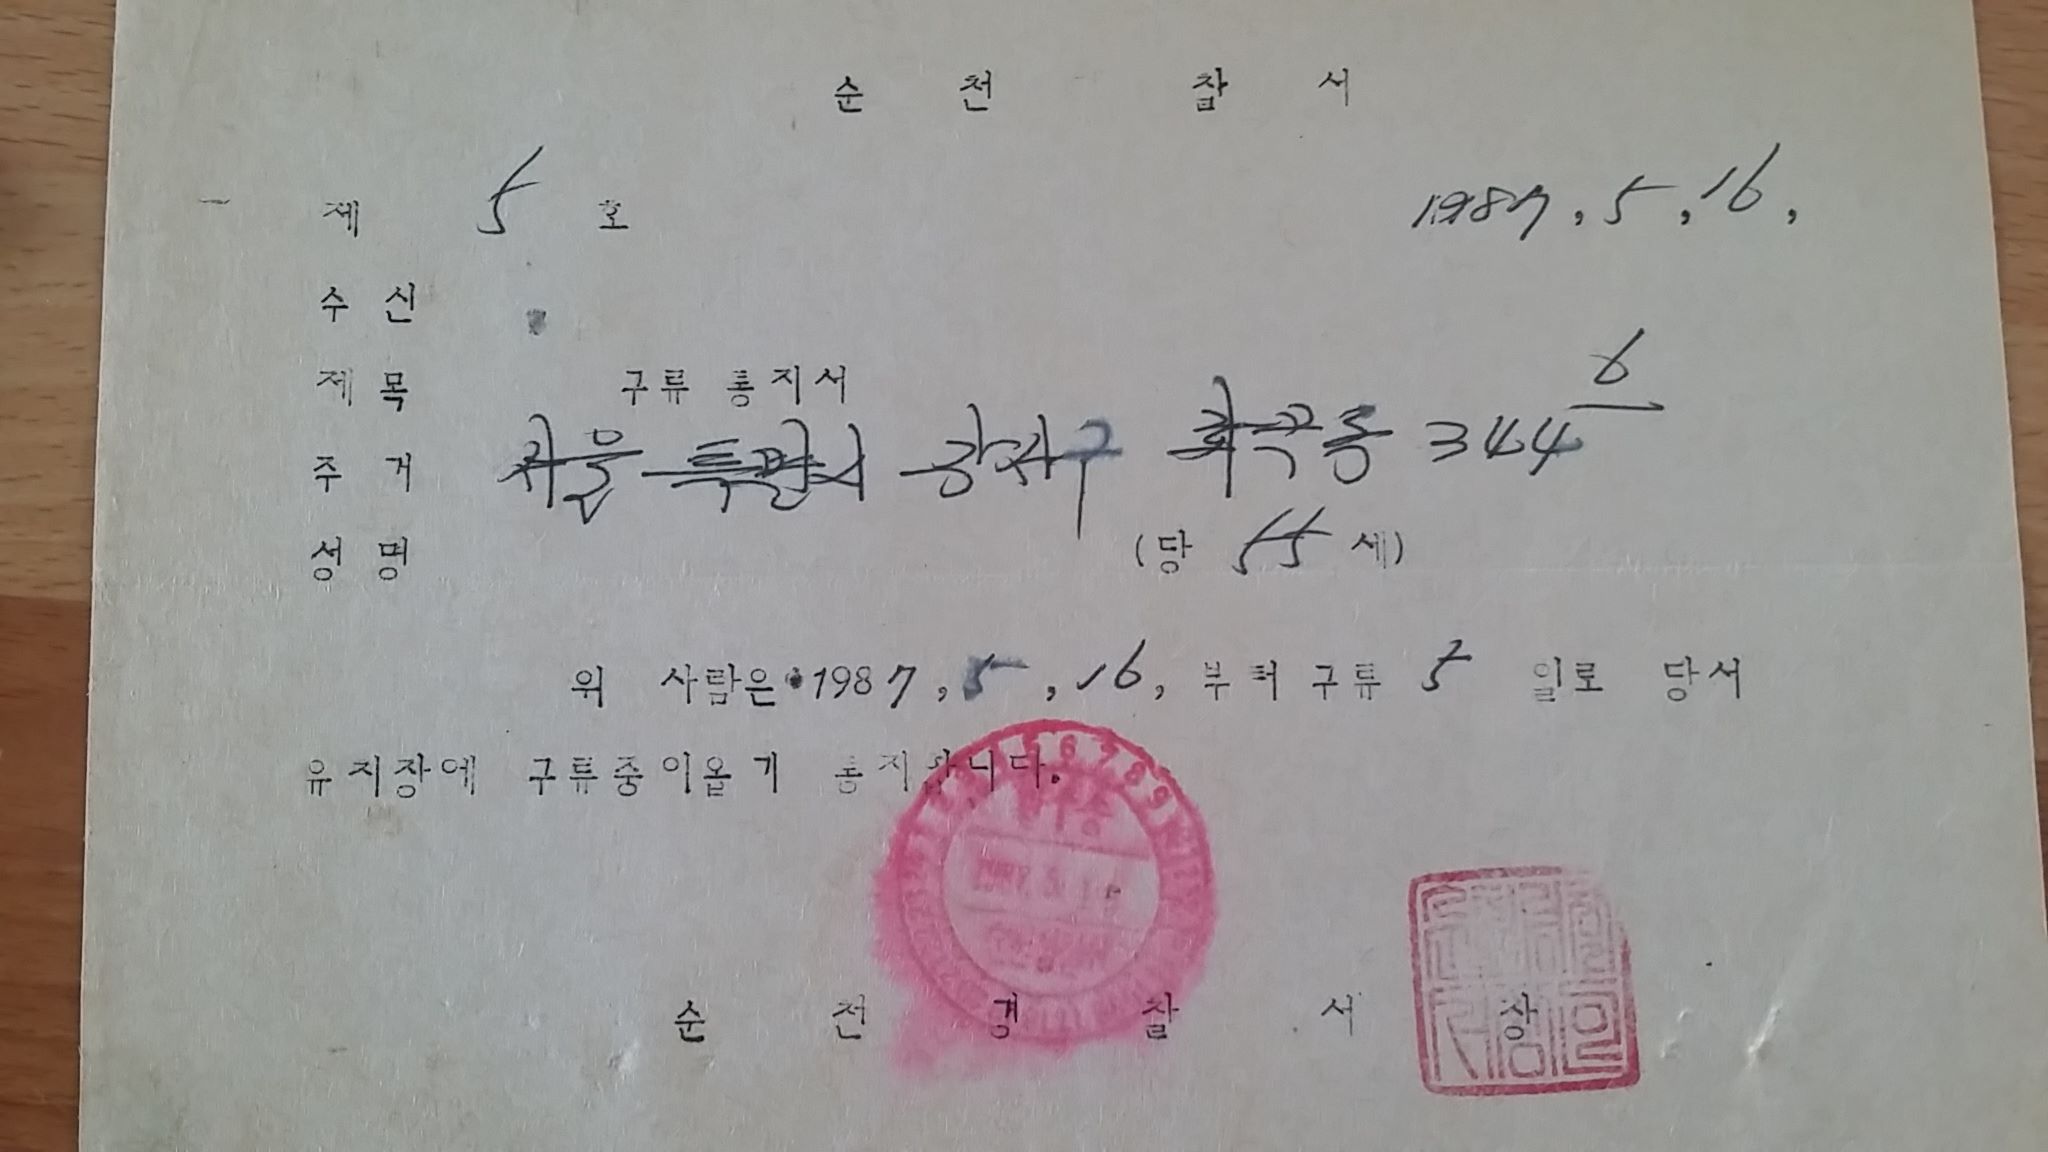 순 천 찰 서
제 5 호 1987. 5. 16.
수 신
제 목 구류 통지서
주 거 서울 특별시 강서구 화곡동 344 6
성 명 (당 55 세)
위 사람은 1987. 5. 16. 부터 구류 5 일로 당서
유치장에 구류중이옵기 통지합니다.
순 천 경 찰 서 장